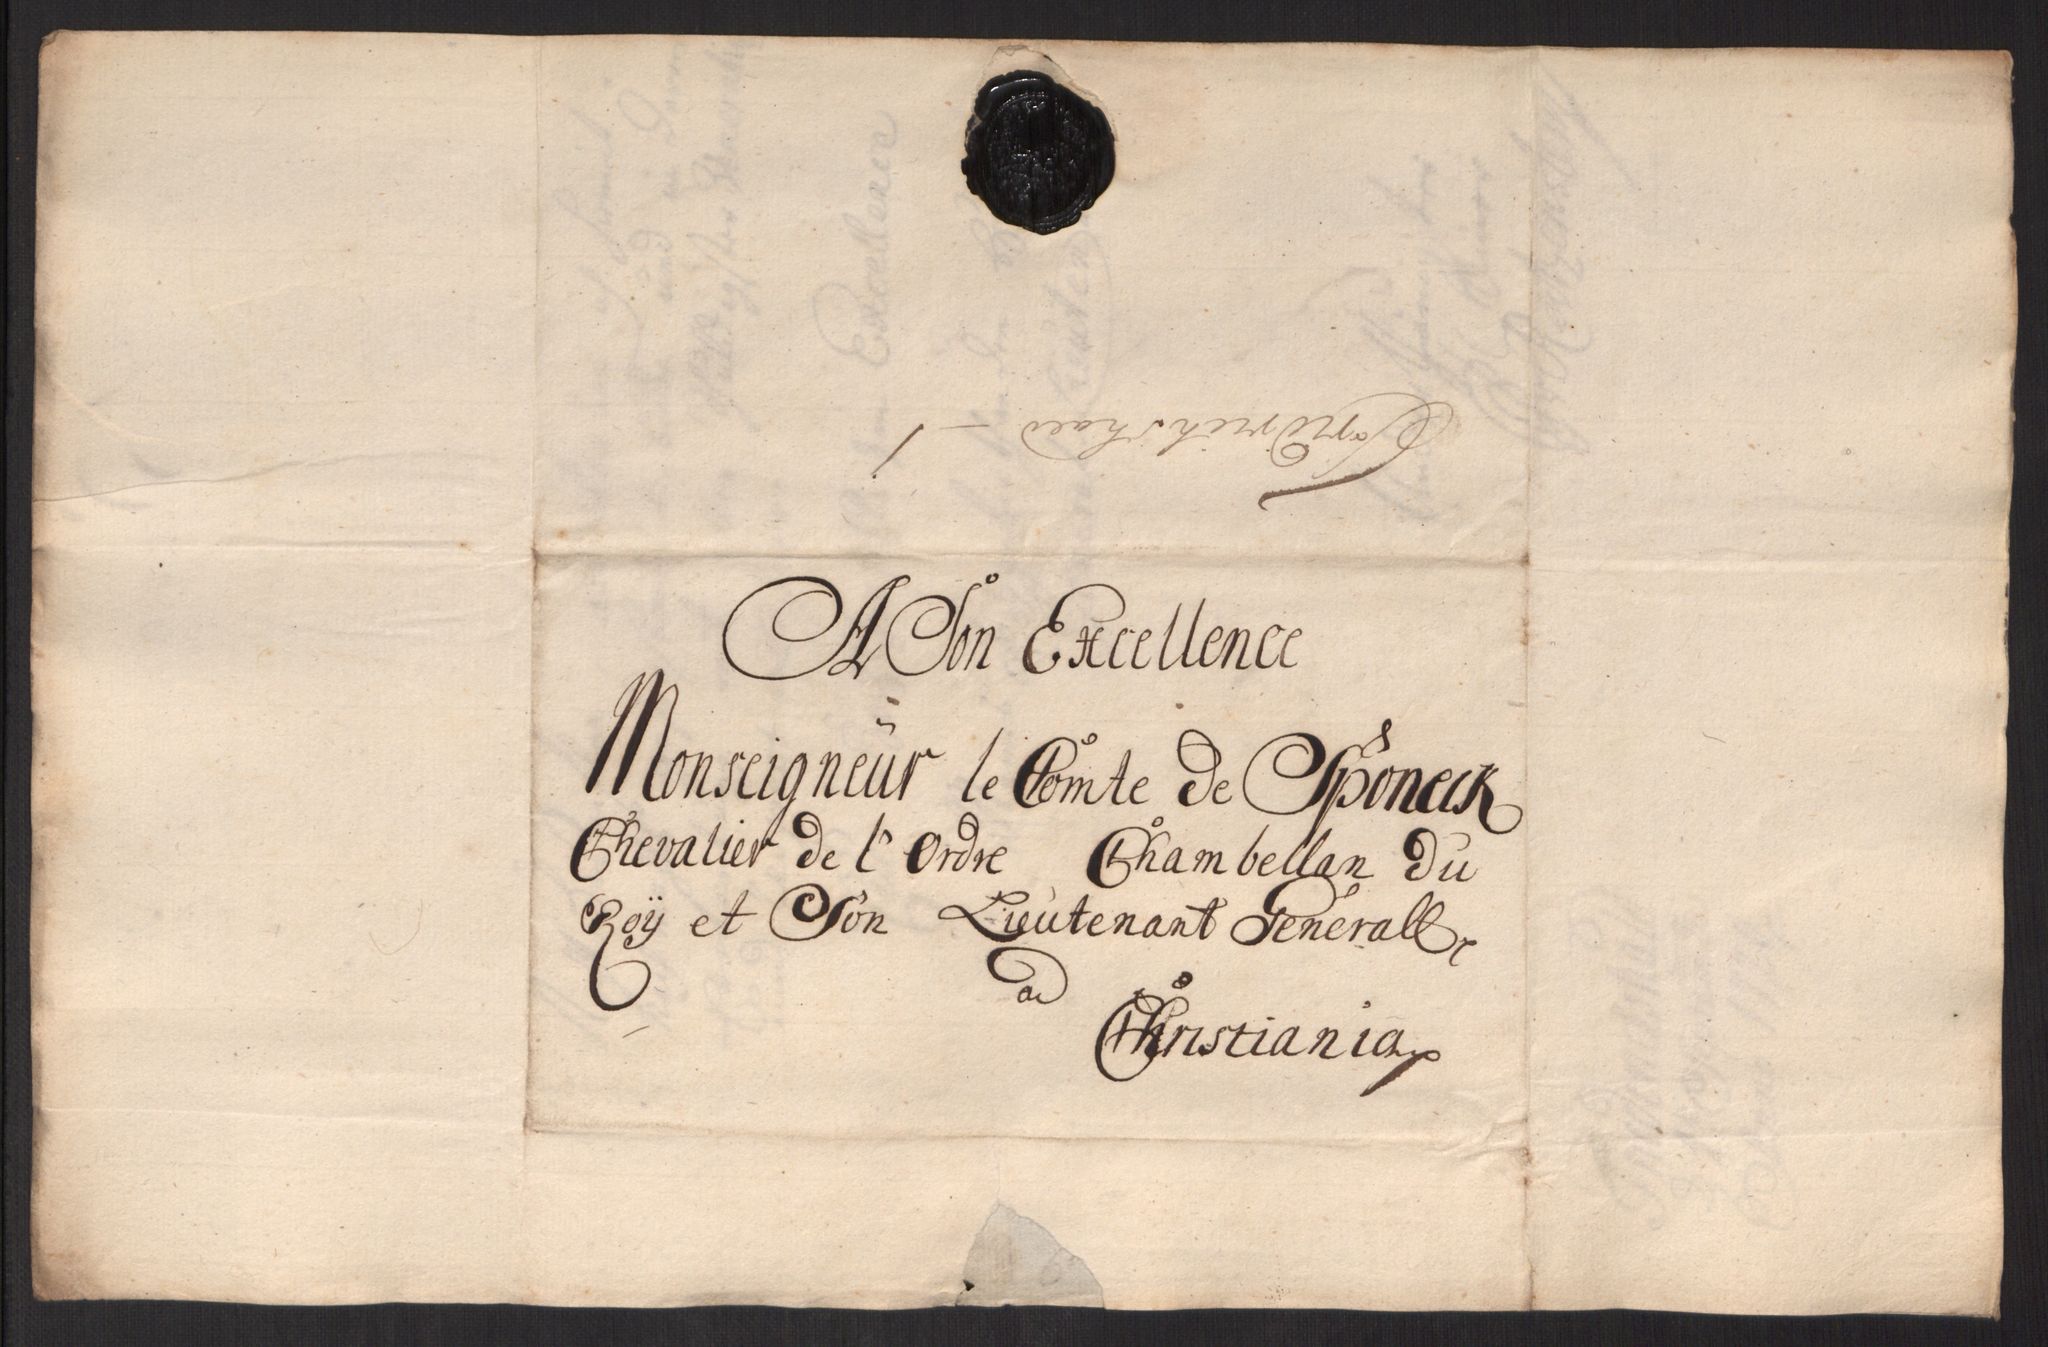 Fridrichshald
A Son Excellence
Monseigneür le Comte de Sponeck
Chevalier de l'Ordre Chambellan du
Roÿ et Son Lieutenant Generall
a
Christiania